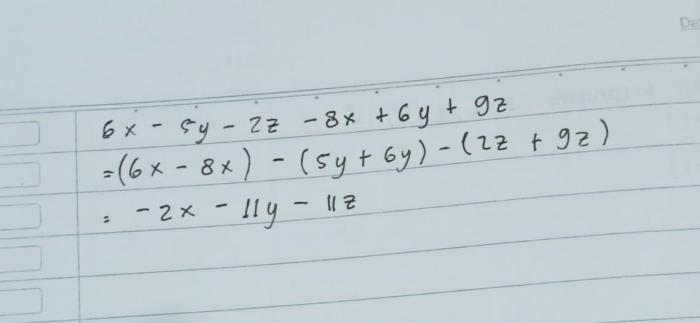 6x - 5y - 2z - 8x + 6y + 9z
=(6x - 8x) - (5y + 6y) - (2z + 9z)
= -2x - 11y - 11z